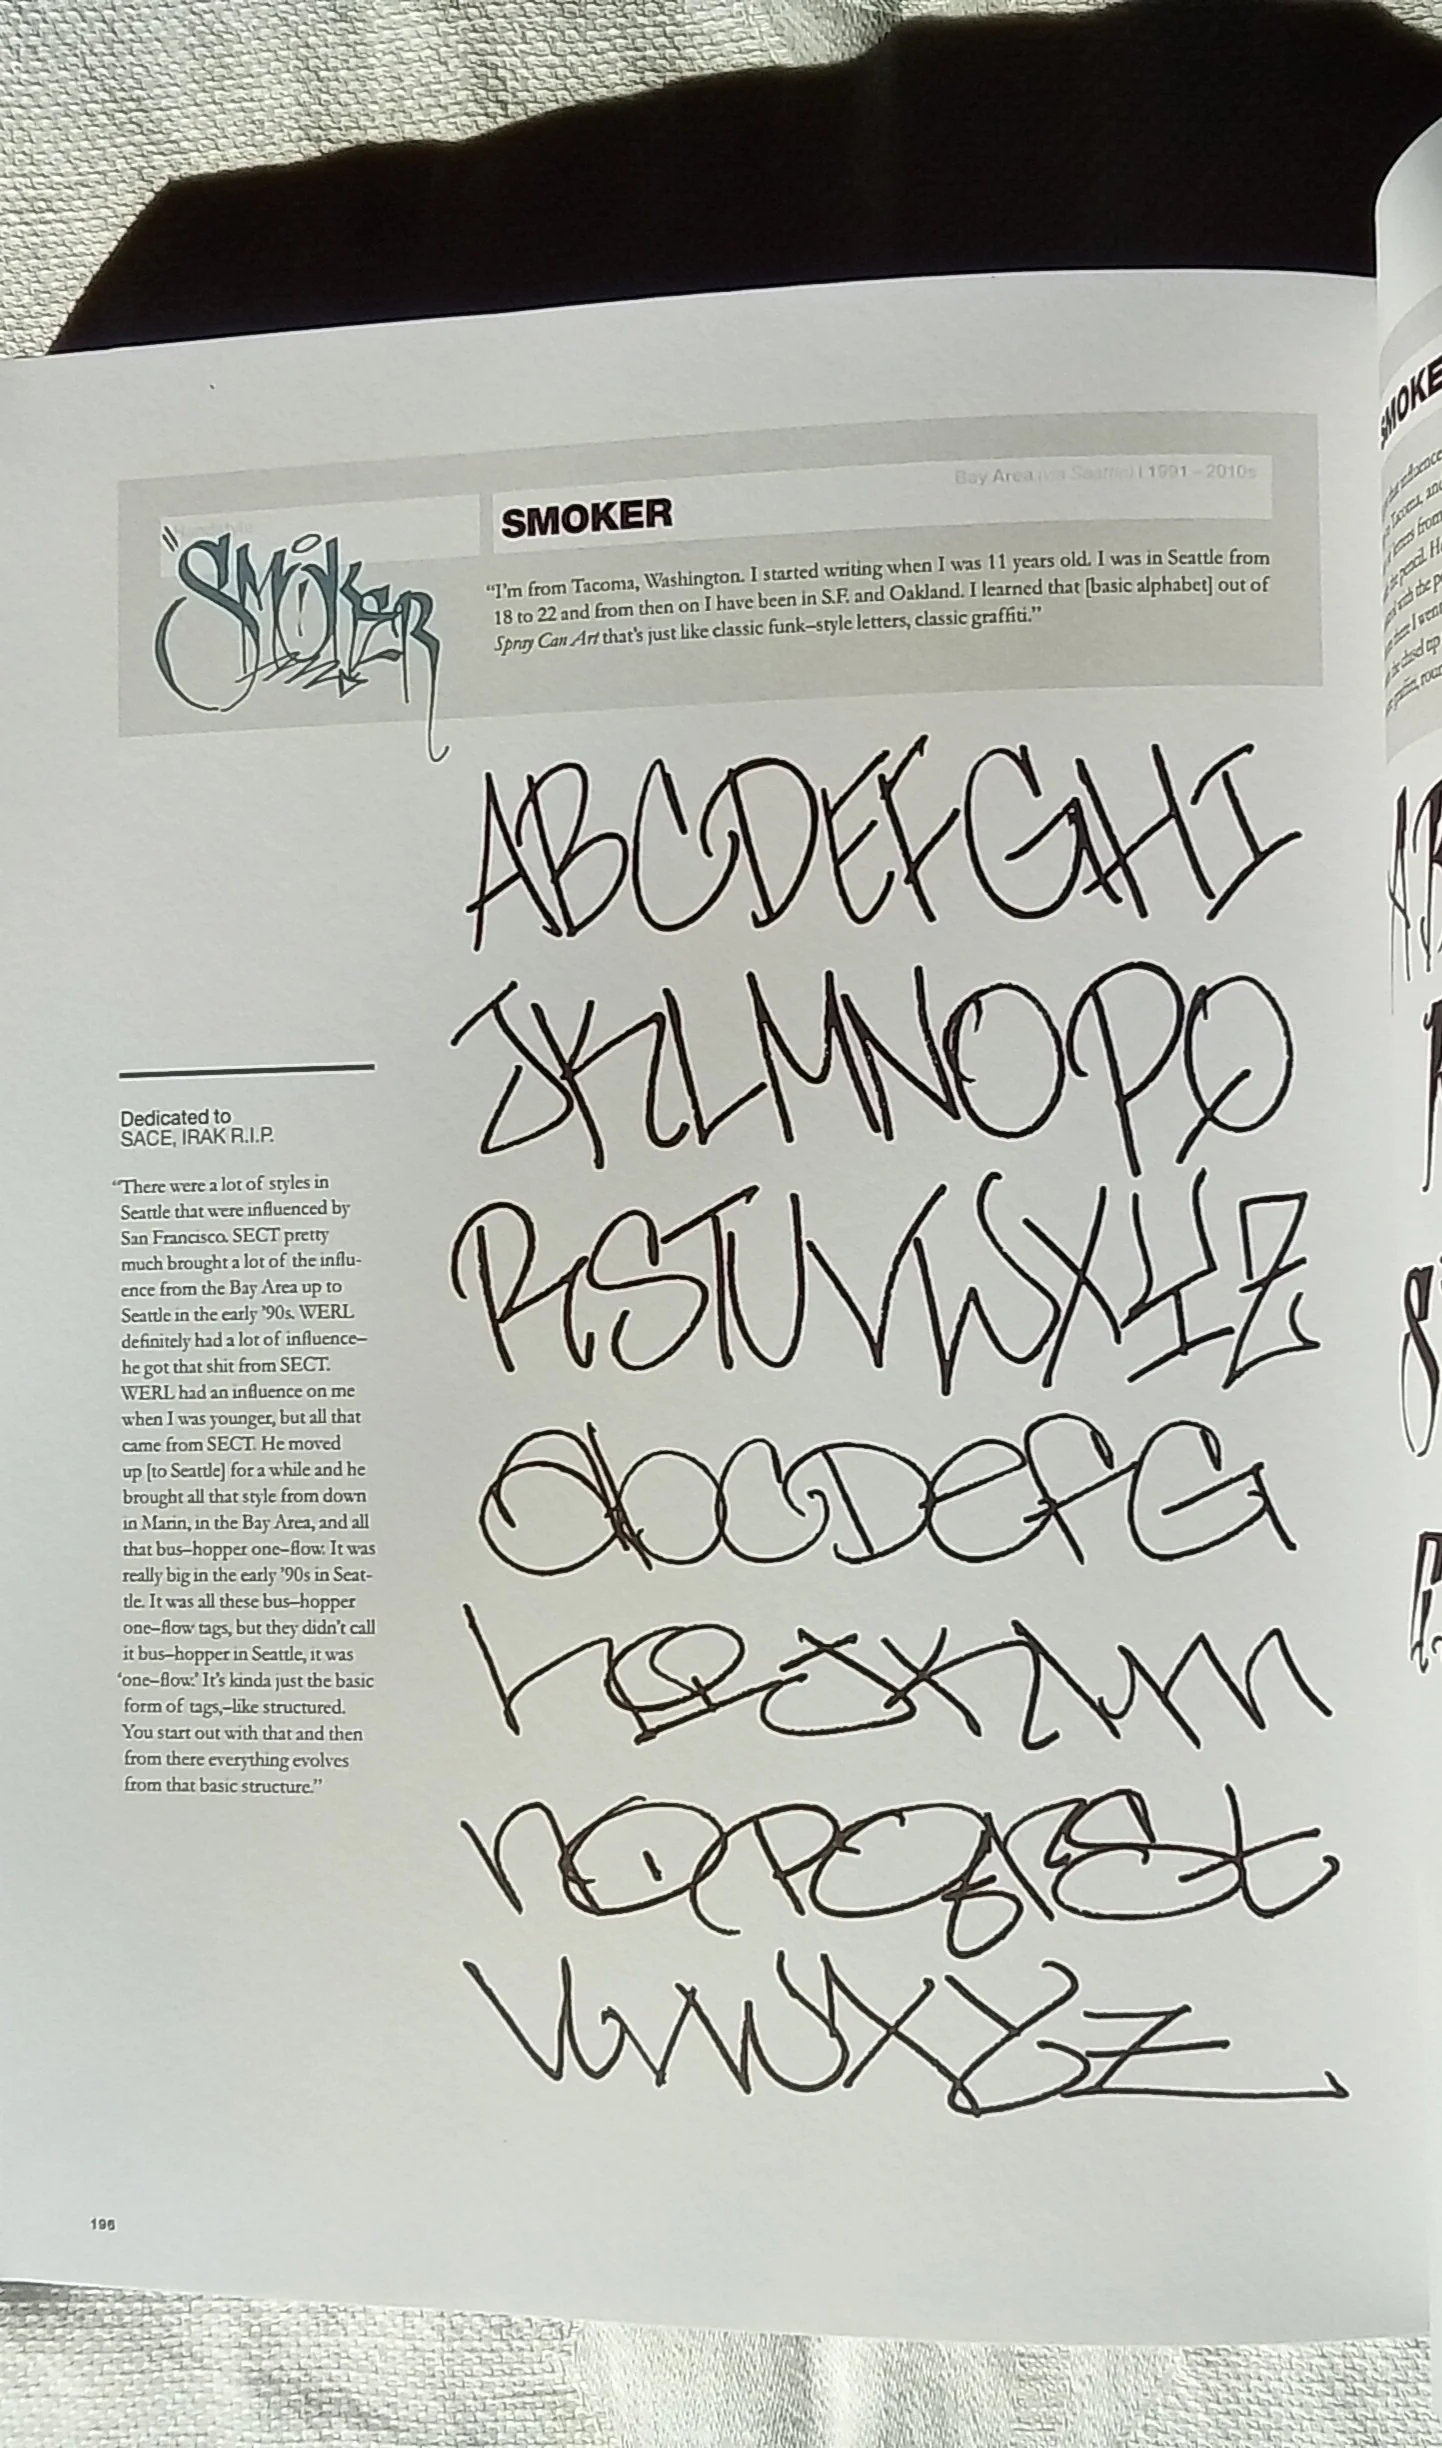 Bay Area via Seattle | 1991 – 2010s
Handstyle
"SMOKER
SMOKER
“I’m from Tacoma, Washington. I started writing when I was 11 years old. I was in Seattle from
18 to 22 and from then on I have been in S.F. and Oakland. I learned that [basic alphabet] out of
Spray Can Art that’s just like classic funk–style letters, classic graffiti.”
ABCDEFGHI
JKLMNOPQ
RSTUVWXYZ
abCDeFG
hIJKLm
nOPQrSt
UVWXYZ
Dedicated to
SACE, IRAK R.I.P.
“There were a lot of styles in
Seattle that were influenced by
San Francisco. SECT pretty
much brought a lot of the influ-
ence from the Bay Area up to
Seattle in the early ’90s. WERL
definitely had a lot of influence–
he got that shit from SECT.
WERL had an influence on me
when I was younger, but all that
came from SECT. He moved
up [to Seattle] for a while and he
brought all that style from down
in Marin, in the Bay Area, and all
that bus–hopper one–flow. It was
really big in the early ’90s in Seat-
tle. It was all these bus–hopper
one–flow tags, but they didn’t call
it bus–hopper in Seattle, it was
‘one–flow.’ It’s kinda just the basic
form of tags,–like structured.
You start out with that and then
from there everything evolves
from that basic structure.”
196
SMOKE